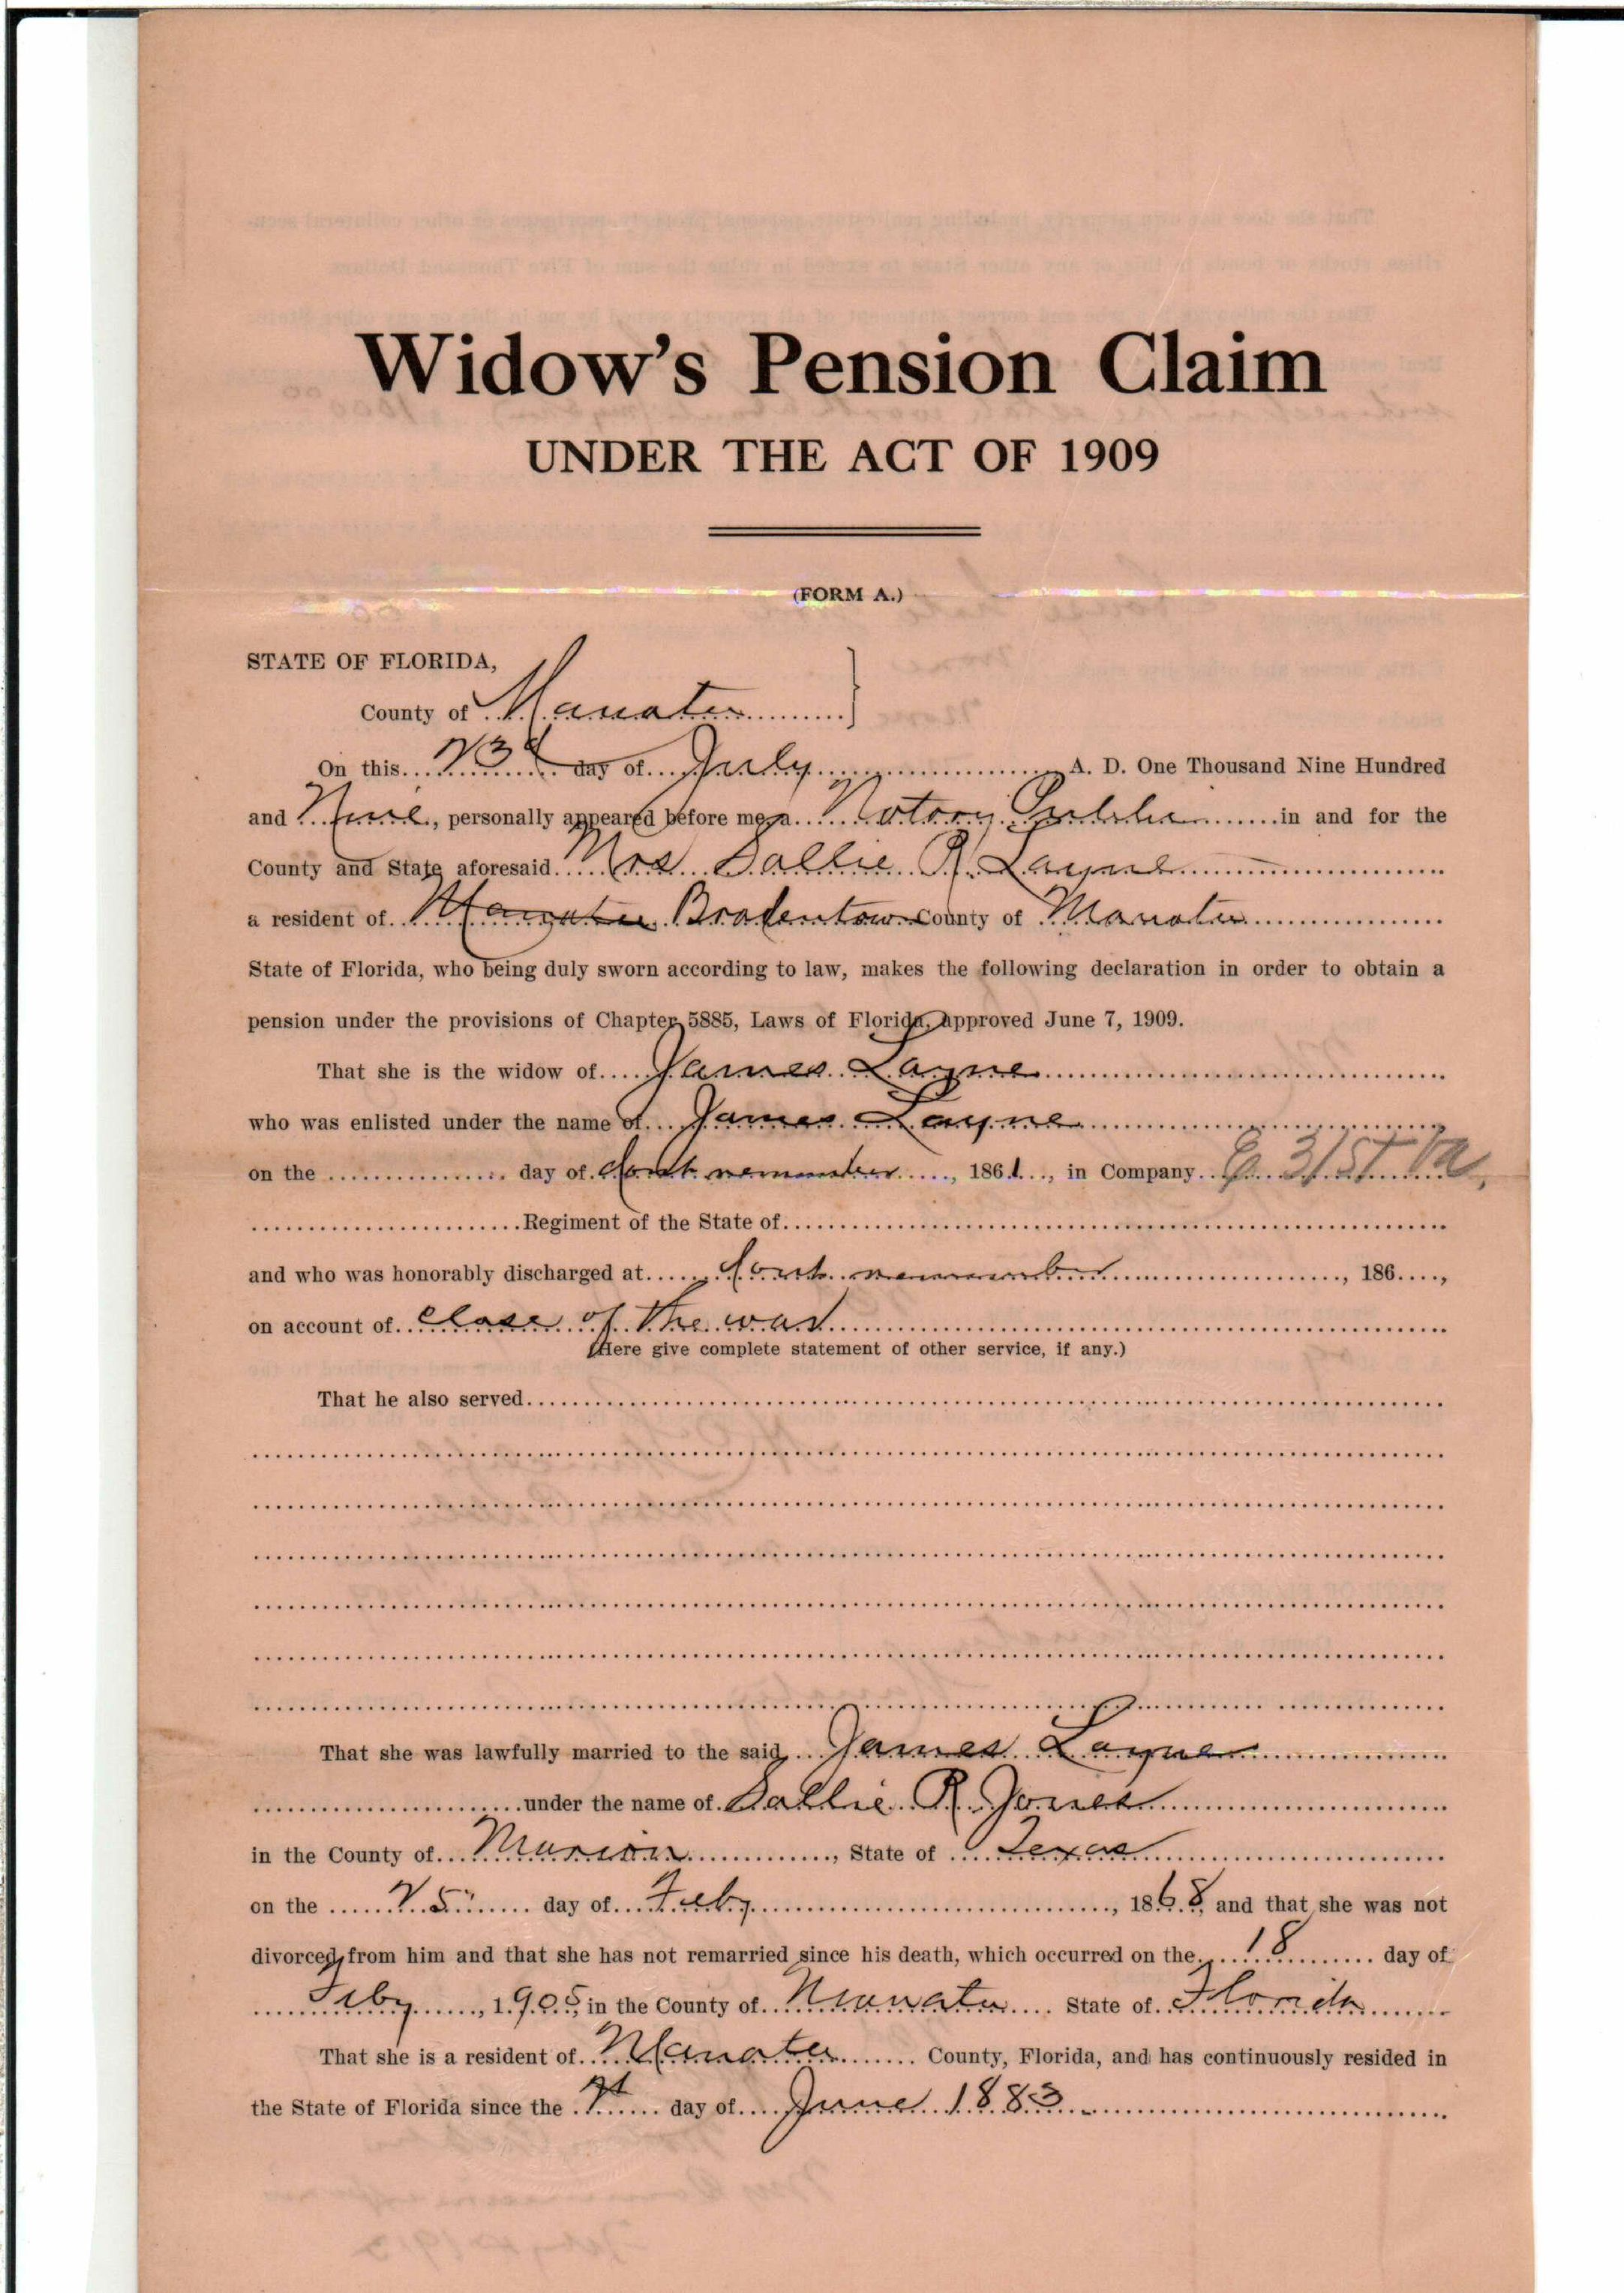 Widow's Pension Claim
UNDER THE ACT OF 1909
(FORM A.)
STATE OF FLORIDA,
County of Manatee
On this 23d day of July A. D. One Thousand Nine Hundred
and Nine, personally appeared before me, a Notary Public in and for the
County and State aforesaid Mrs Sallie R Layne
a resident of Manatee Bradentown County of Manatee
State of Florida, who being duly sworn according to law, makes the following declaration in order to obtain a
pension under the provisions of Chapter 5885, Laws of Florida, approved June 7, 1909.
That she is the widow of James Layne
who was enlisted under the name of James Layne
on the day of dont remember, 1861, in Company E 31st Va,
Regiment of the State of
and who was honorably discharged at dont remember, 186 ,
on account of close of the war
(Here give complete statement of other service, if any.)
That he also served
That she was lawfully married to the said James Layne
under the name of Sallie R. Jones
in the County of Marion, State of Texas
on the 25" day of Feby, 1868, and that she was not
divorced from him and that she has not remarried since his death, which occurred on the 18 day of
Feby, 1905, in the County of Manatee State of Florida
That she is a resident of Manatee County, Florida, and has continuously resided in
the State of Florida since the day of June 1883